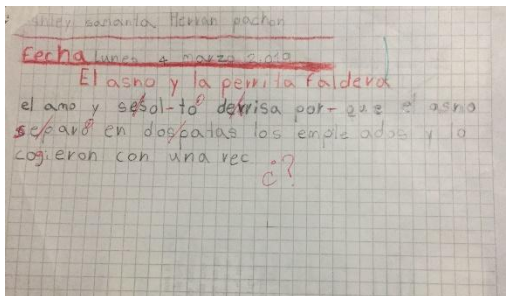 Herran pachon
Fecha lunes 4 marzo 2019
El asno y la perrita faldera
el amo y sesol-to derrisa por-que el asno
separo en dospatas los emple ados y lo
cogieron con una rec
¿?